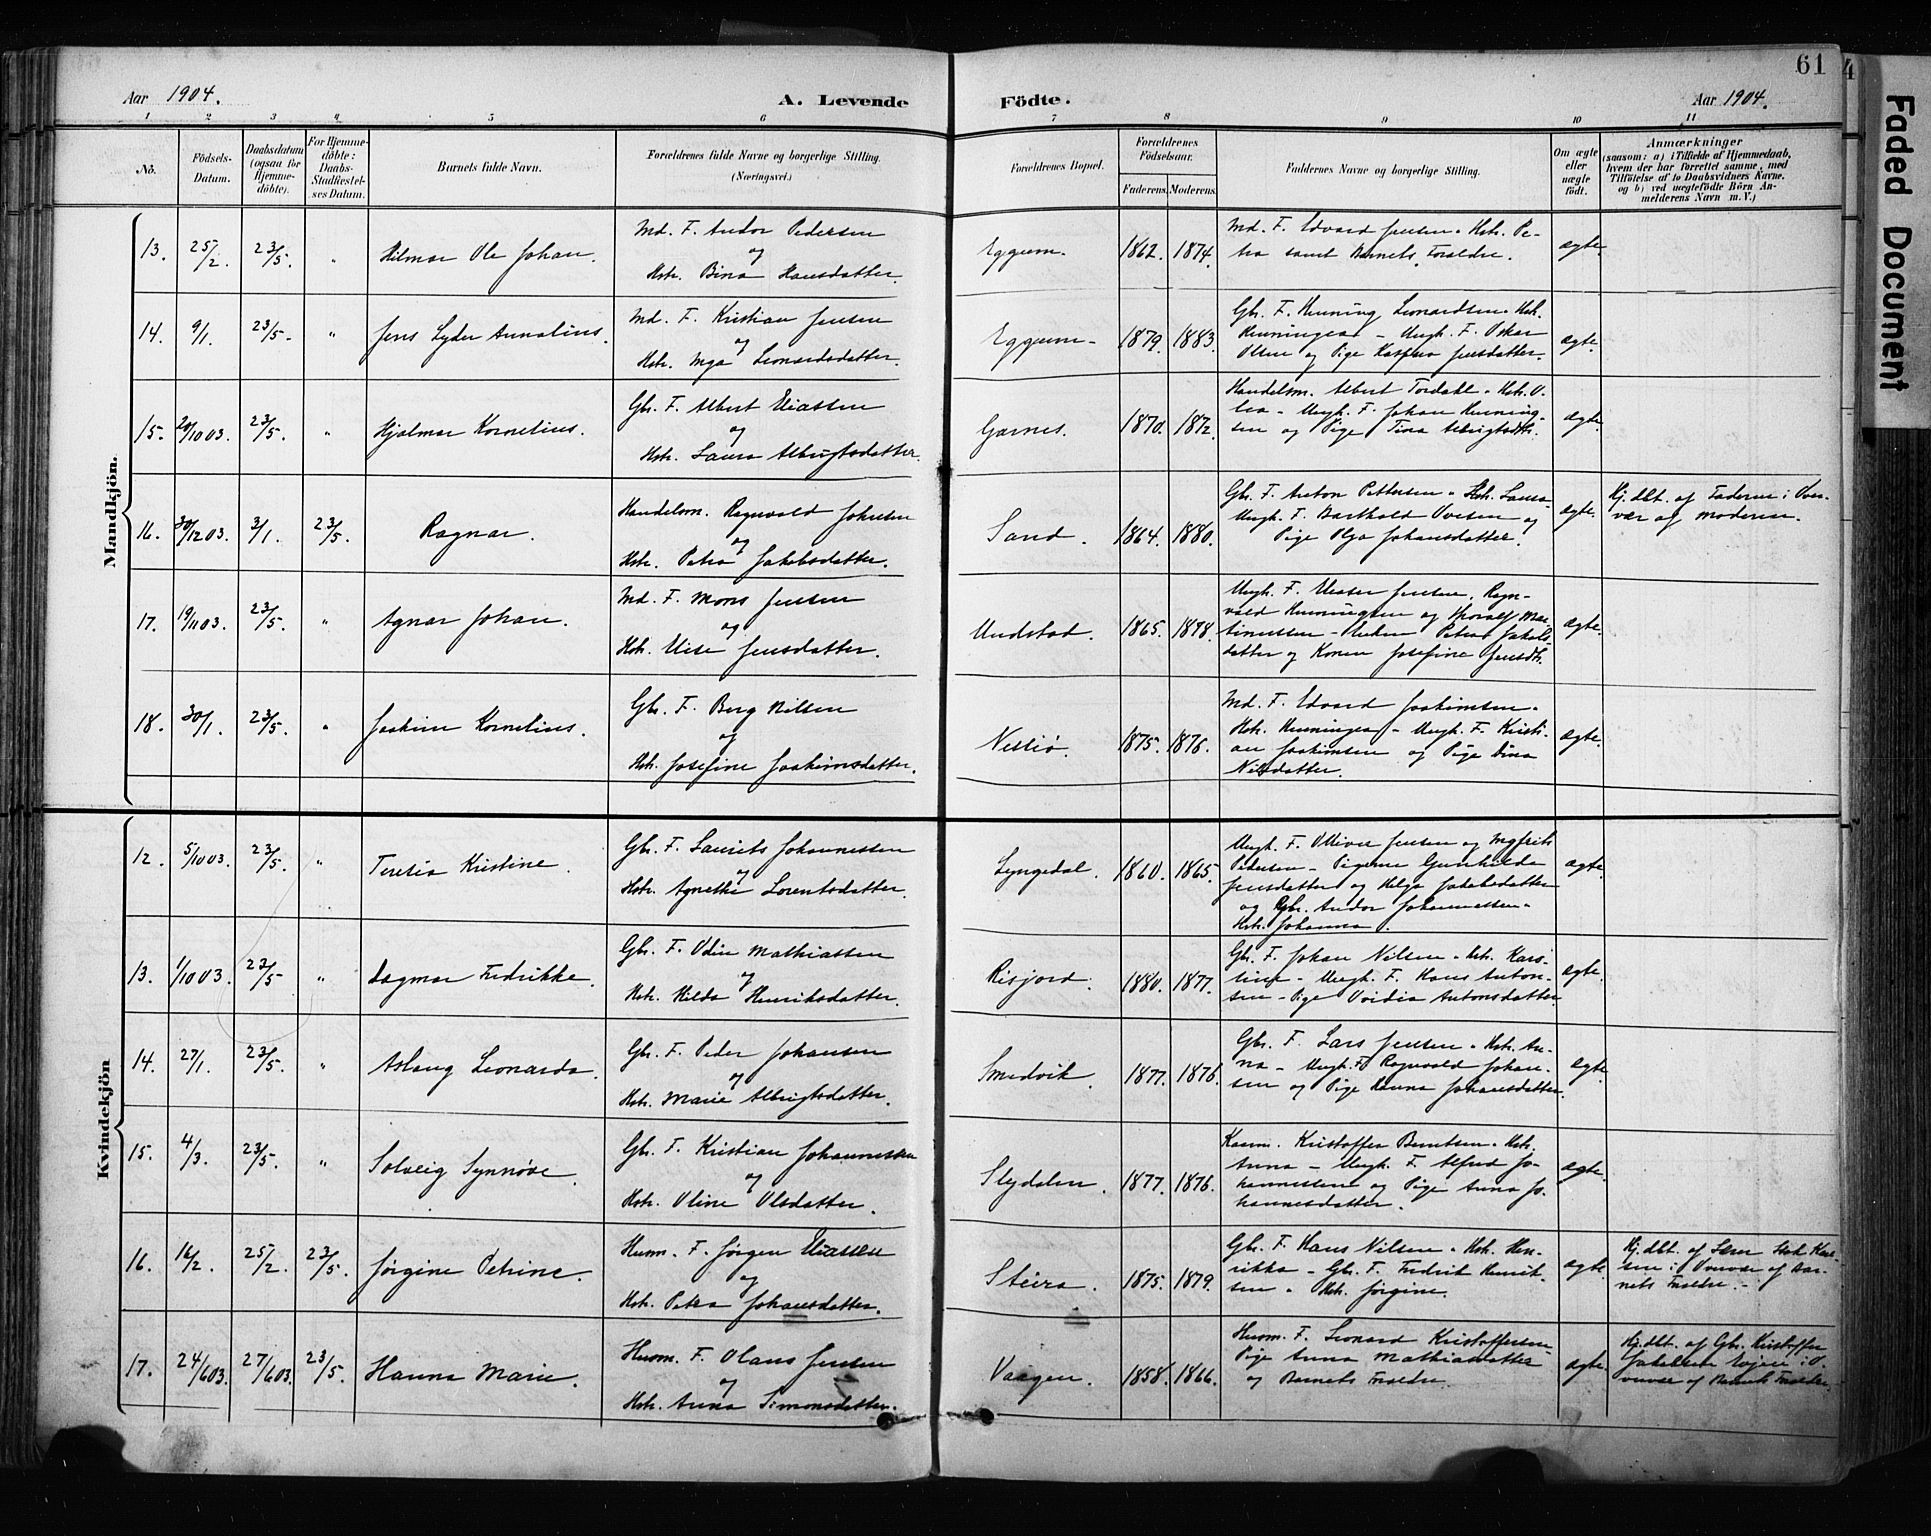 61
Aar 1904.
A. Levende
Födte.
Aar 1904.
1 2 3 4 5 6 7 8 9 10 11
No.
Födsels-
Datum.
Daabsdatum
(ogsaa for
Hjemme-
döbte).
For Hjemme-
döbte:
Daabs-
Stadfæstel-
ses Datum.
Barnets fulde Navn.
Forældrenes fulde Navne og borgerlige Stilling.
(Næringsvei.)
Forældrenes Bopæl.
Forældrenes
Födselsaar.
Faderens. Moderens.
Faddernes Navne og borgerlige Stilling.
Om ægte
eller
uægte
födt.
Anmærkninger
(saasom: a) i Tilfælde af Hjemmedaab,
hvem der har forrettet samme, med
Tilföielse af to Daabsvidners Navne.
og b) ved uægtefödte Börn An-
melderens Navn m. V.)
Mandkjön.
13. 25/2. 23/5. " Hilmar Ole Johan.
Md. F. Andor Pedersen
og
Hstr. Bina Hansdatter.
Eggum. 1862. 1874.
Md. F. Edvard Jensen. Hstr. Pe-
tra samt Barnets Forældre.
ægte.
14. 9/1. 23/5. " Jens Lyder Annalius.
Md. F. Kristian Jensen
og
Hstr. Inga Leonardsdatter.
Eggum. 1879. 1883.
Gbr. F. Henning Leonardsen. Hstr.
Henningea - Ungk. F. Oskar
Olsen og Pige Jensdatter.
ægte.
15. 20/10 03. 23/5. " Hjalmar Kornelius.
Gbr. F. Albert Eliassen
og
Hstr. Laura Albrigtsdatter.
Garnes. 1870. 1872.
Handelsm. Albert Tordahl. Hstr. O-
lea - Ungk. F. Johan Henning-
sen og Pige Tina Albrigtsdtr.
ægte.
16. 30/12 03. 3/1. 23/5. Ragnar.
Handelsm. Ragnvald Johnsen
og
Hstr. Petra Jakobsdatter.
Sand. 1864. 1880.
Gbr. F. Anton Pettersen. Hstr. Laura
Ungk. F. Barthold Ovesen og
Pige Olga Johansdatter.
ægte.
Hj.dbt. af Faderen i Over-
vær af Moderen.
17. 19/11 03. 23/5. " Agnar Johan.
Md. F. Mons Jensen
og
Hstr. Elise Jensdatter.
Undstad. 1865. 1878.
Ungk. F. Jensen, Ragn-
vald Henningsen og Thoralf Mar-
tinussen - Enken Petra Jakobs-
datter og Konen Josefine Jensdtr.
ægte.
18. 30/1. 23/5. " Joakim Kornelius.
Gbr. F. Berg Nilsen
og
Hstr. Josefine Joakimsdatter.
1875. 1876.
Md. F. Edvard Joakimsen.
Hstr. Henningea - Ungk. F. Kristi-
an Joakimsen og Pige Dina
Nilsdatter.
ægte.
Kvindekjön
12. 5/10 03. 23/5. " Teresia Kristine.
Gbr. F. Laurits Johannessen
og
Hstr. Agnethe Lorentsdatter.
Lyngedal. 1860. 1865.
Ungk. F. Oliver Jensen og Ingfrik
Pedersen - Pigerne Gunhilda
Jensdatter og Helga Jakobsdatter
og Gbr. Andor Johannessen.
Hstr. Johanna.
ægte.
13. 1/10 03. 23/5. " Dagmar Fredrikke.
Gbr. F. Odin Mathiassen
og
Hstr. Hilda Henriksdatter.
Risjord. 1880. 1877.
Gbr. F. Johan Nilsen. Hstr. Kars-
tine - Ungk. F. Hans Anton-
sen - Pige Ovidia Antonsdatter.
ægte.
14. 27/1. 23/5. " Aslaug Leonarda.
Gbr. F. Peder Johansen
og
Hstr. Marie Albrigtsdatter.
Smedvik. 1877. 1876.
Gbr. F. Lars Jensen. Hstr. An-
na - Ungk. F. Ragnvald Johan-
sen og Pige Hanna Johansdatter.
ægte.
15. 4/3. 23/5. " Solveig Synnöve.
Gbr. F. Kristian Johannessen
og
Hstr. Oline Olsdatter.
Slydalen. 1877. 1876.
Kaarm. Kristoffer Berntsen. Hstr.
Anna - Ungk. F. Alfred Jo-
hannessen og Pige Anna Jo-
hannesdatter.
ægte.
16. 16/2. 25/2. 23/5. Jörgine Petrine.
Husm. F. Jörgen Eliassen
og
Hstr. Petra Johansdatter.
Steira. 1875. 1879.
Gbr. F. Hans Nilsen. Hstr. Hen-
rikka - Gbr. F. Fredrik Henrik-
sen. Hstr. Jörgine.
ægte.
Hj.dbt. af Lærer
i Overvær af Bar-
nets Forældre.
17. 24/6 03. 27/6 03. 23/5. Hanna Marie.
Husm. F. Olaus Jensen
og
Hstr. Anna Simonsdatter.
Vaagen. 1858. 1866.
Husm. F. Leonard Kristoffersen
Pige Anna Mathiasdatter
og Barnets Forældre.
ægte.
Hj.dbt. af Gbr. Kristoffer
Jakobsen i O-
vervær af Barnets Forældre.
Faded Document